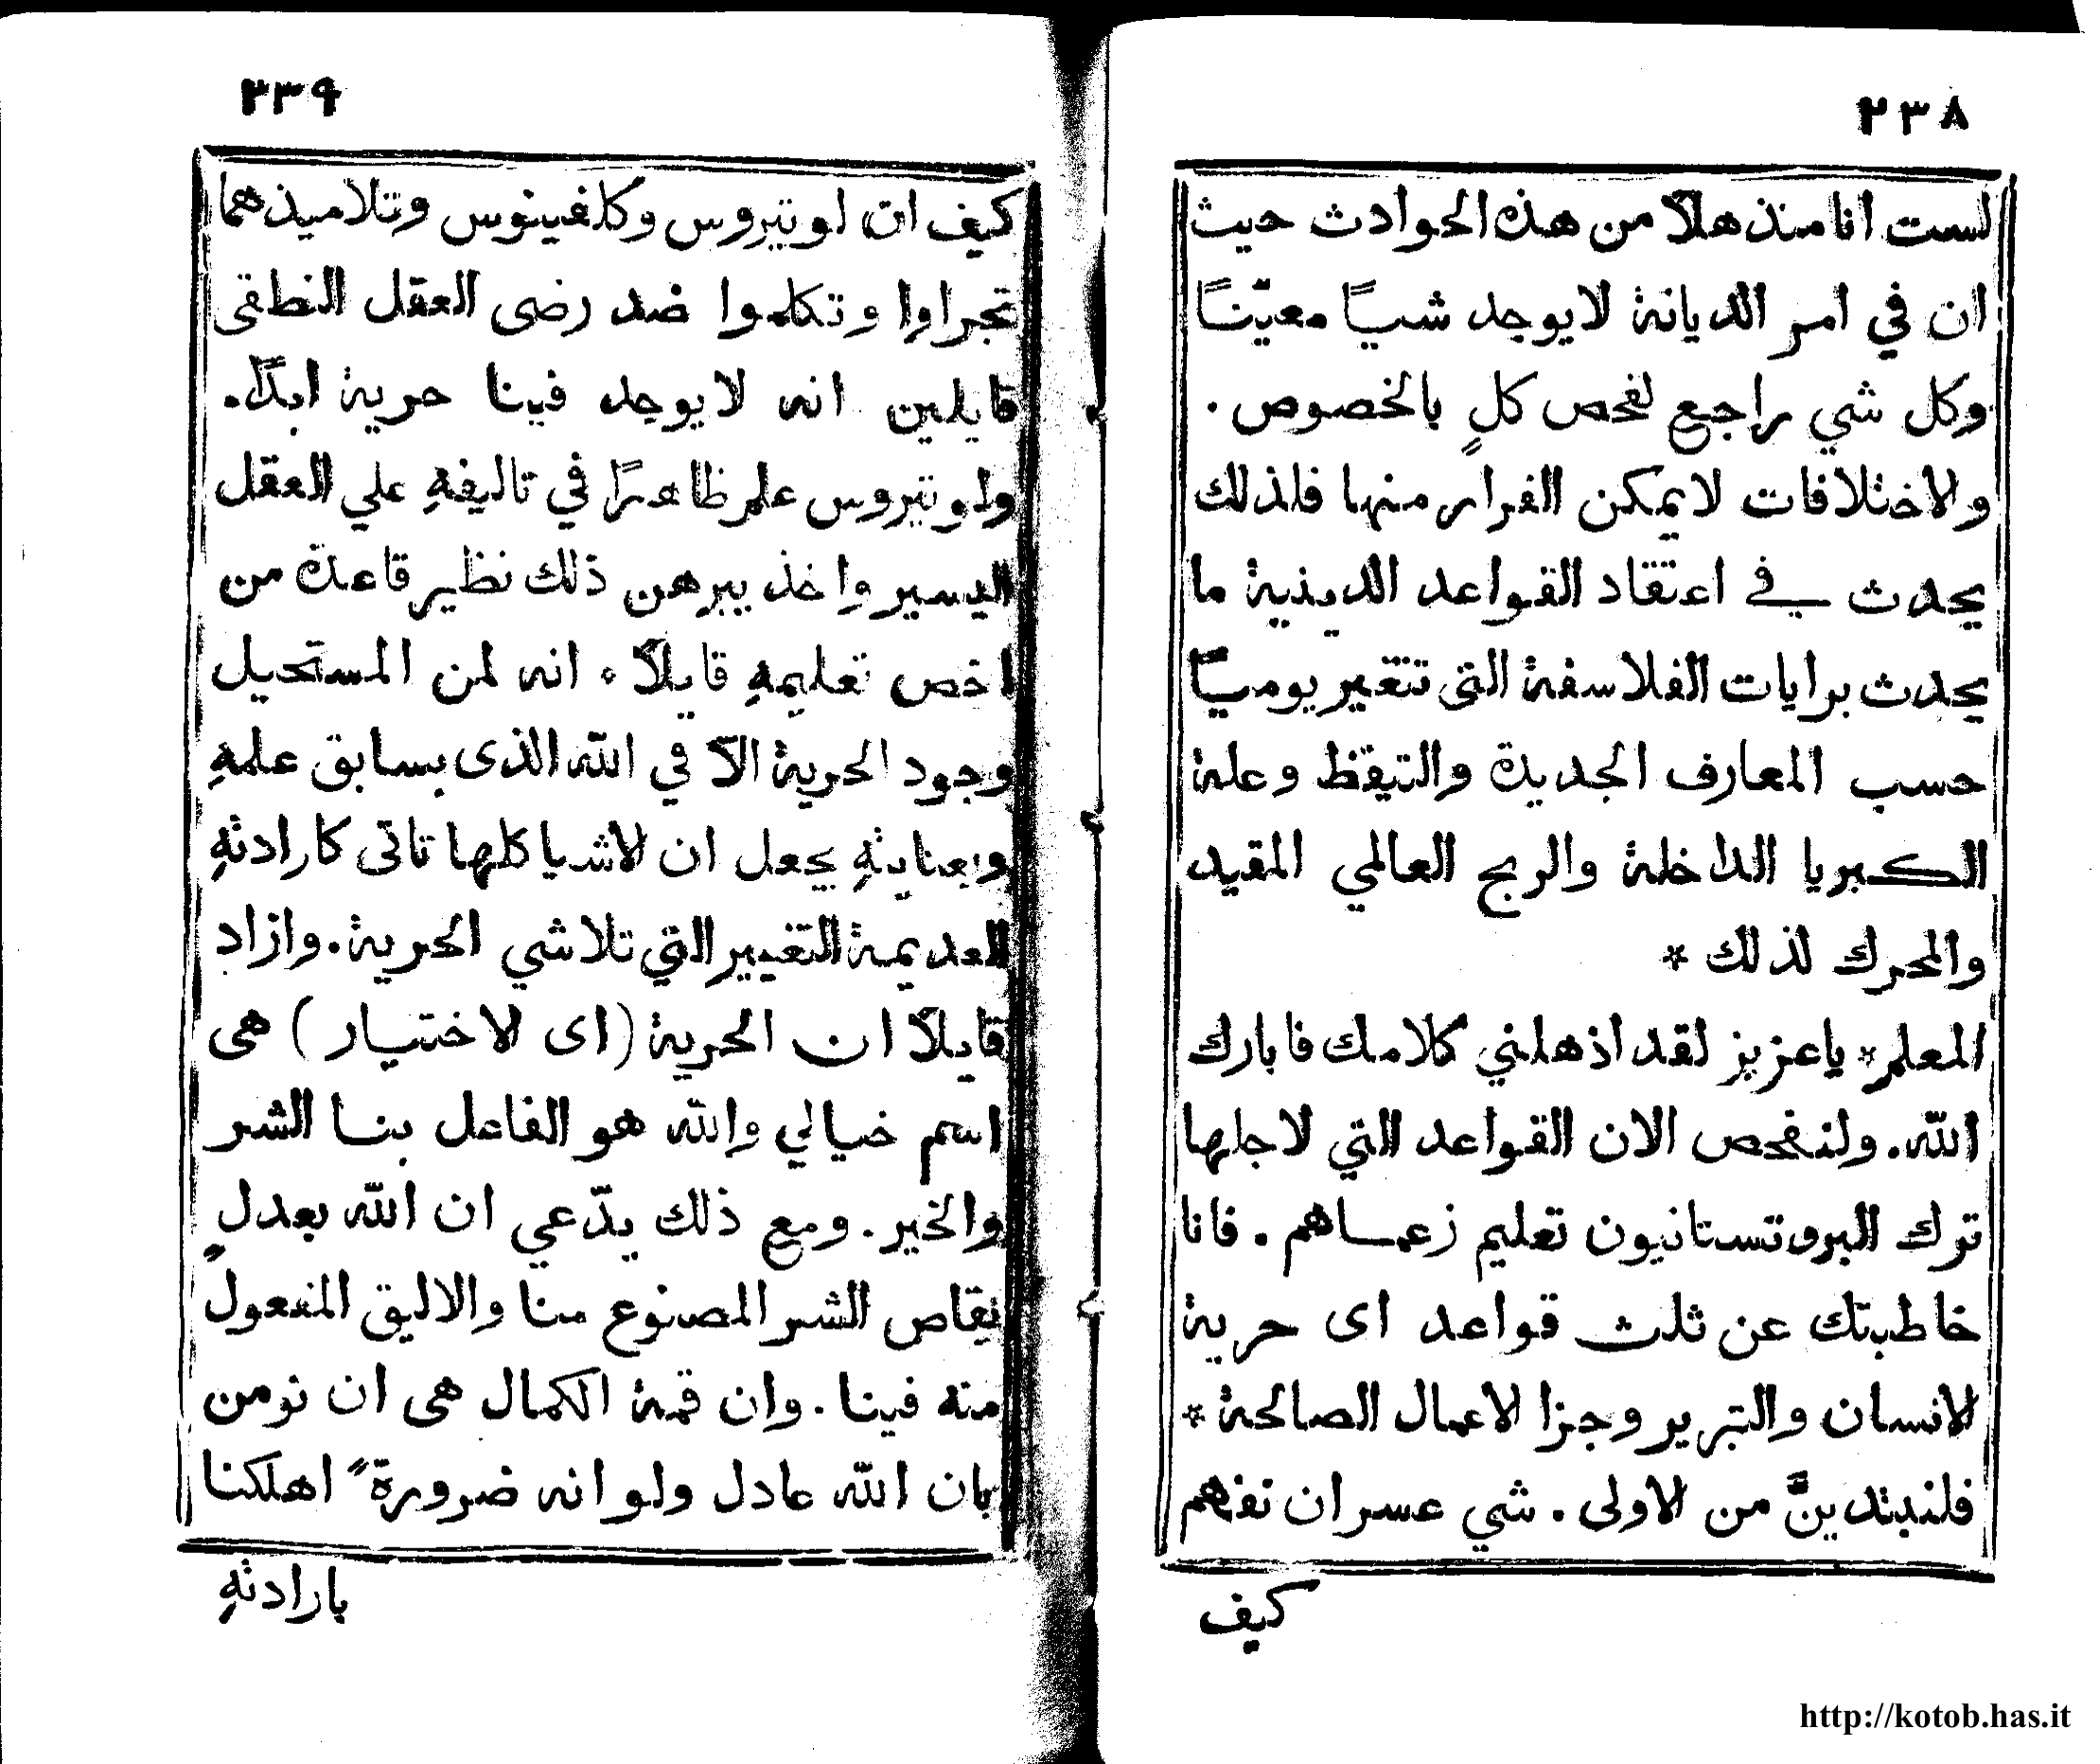 ٢٣٨
لست انا منذهلاً من هذه الحوادث حيث
ان في امر الديانة لا يوجد شياً معيّناً
وكل شي راجع لفحص كلٍ بالخصوص .
والاختلافات لا يمكن الفرار منها فلذلك
يحدث في اعتقاد القواعد الدينية ما
يحدث برايات الفلاسفة التى تتغير يومياً
حسب المعارف الجديدة والتيقظ وعلة
الكبريا الداخلة والربح العالمي المقيد
والمحرك لذلك *
المعلم * يا عزيز لقد اذهلني كلامك فابارك
الله. ولنفحص الان القواعد التي لاجلها
ترك البروتستانيون تعليم زعماهم . فانا
خاطبتك عن ثلث قواعد اى حرية
الانسان والتبرير وجزا الاعمال الصالحة *
فلنبتدينَّ من الاولى . شي عسر ان نفهم
كيف
٢٣٩
كيف ان لوتيروس وكلفينوس وتلاميذهما
تجراوا وتكلموا ضد رضى العقل النطقى
قايلين انه لا يوجد فينا حرية ابداً.
ولوتيروس علم ظاهراً في تاليفهِ علي العقل
اليسير واخذ يبرهن ذلك نظير قاعدة من
اخص تعليمهِ قايلاً . انه لمن المستحيل
وجود الحرية الاّ في الله الذى بسابق علمهِ
وبعنايتهِ يجعل ان الاشيا كلها تاتى كارادتهِ
العديمة التغيير التي تلاشي الحرية. وازاد
قايلاً ان الحرية (اى الاختيار) هى
اسم خيالي والله هو الفاعل بنا الشر
والخير. ومع ذلك يدّعي ان الله بعدلٍ
يقاص الشر المصنوع منا والاليق المفعول
منه فينا . وان قمة الكمال هى ان نومن
بان الله عادل ولو انه ضرورةً اهلكنا
بارادتهِ
http://kotob.has.it